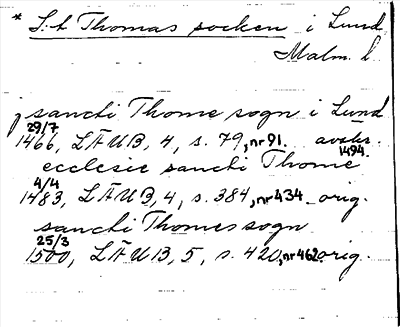 * S:t Thomas socken i Lund
Malm. l.
j sancti Thome sogn i Lund
29/7
1466, LÄUB, 4, s. 79, nr 91. avskr.
1494.
ecclesie sancti Thome
4/4
1483, LÄUB, 4, s. 384, nr 434 orig.
sancti Thomes sogn
25/3
1500, LÄUB, 5, s. 420, nr 462 orig.